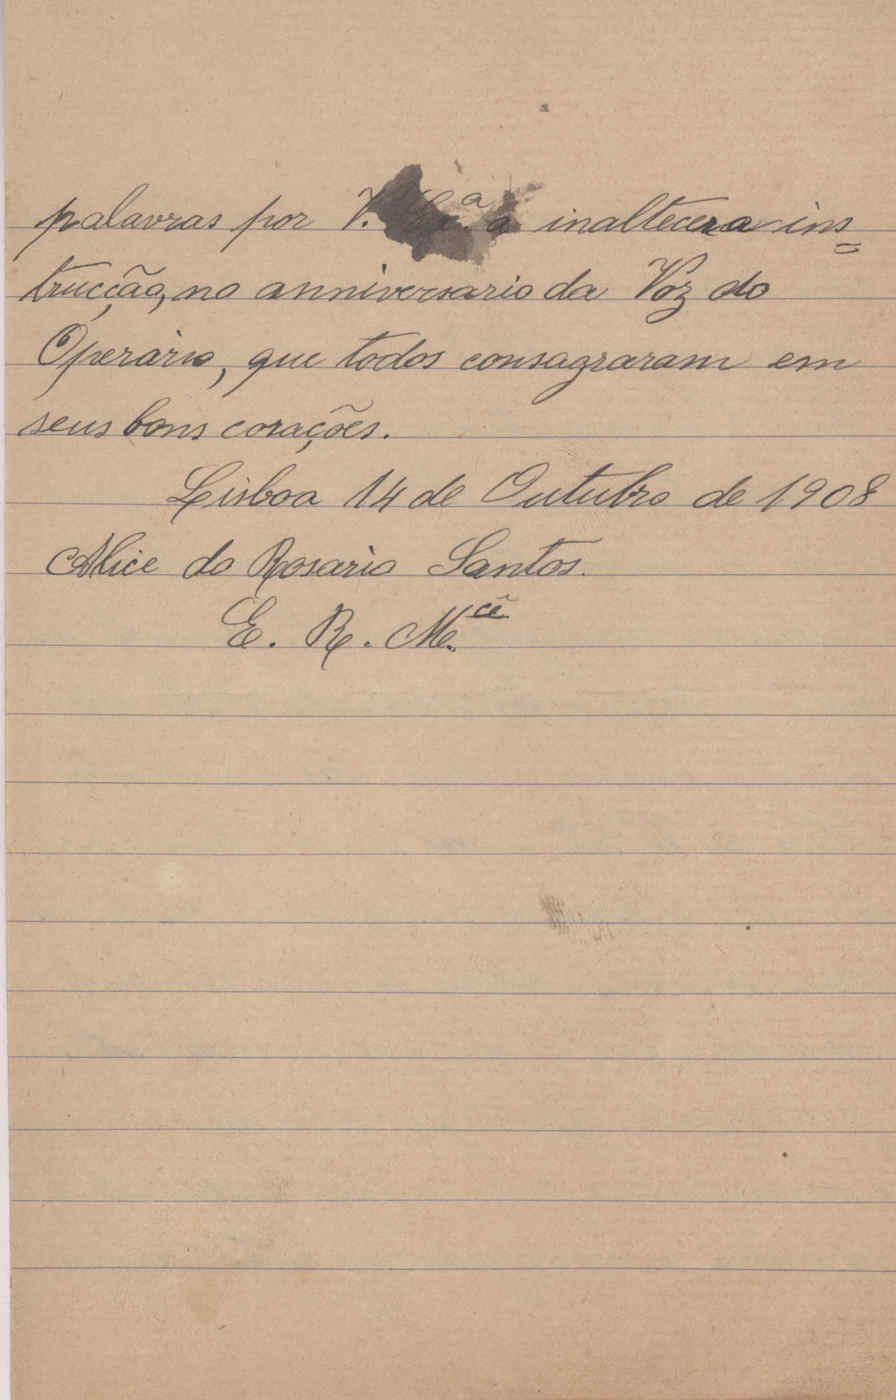 palavras por V. Ex.ª a inaltecer a ins=
trucção, no anniversario da Voz do
Operário, que todos consagraram em
seus bons corações.
Lisboa 14 de Outubro de 1908
Alice do Rosario Santos.
E. R. M.cê